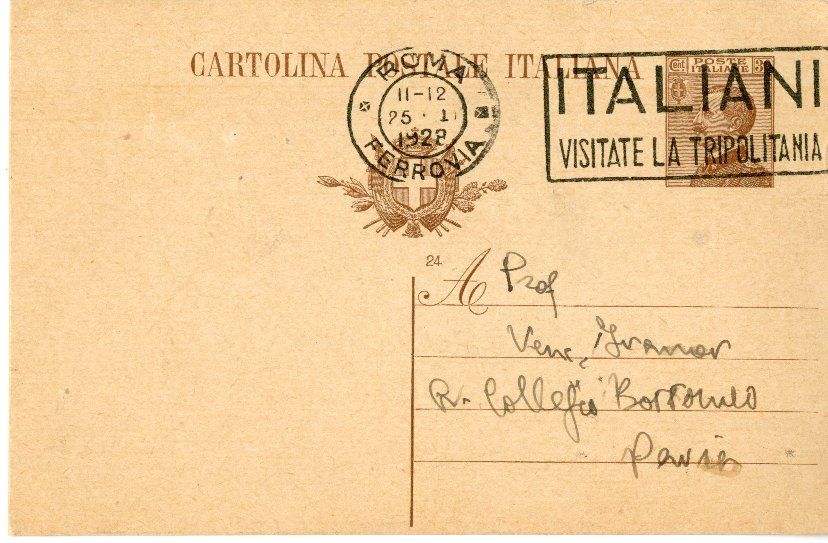 CARTOLINA POSTALE ITALIANA
ROMA
11-12
25 · 1
1928
FERROVIA
Cent POSTE ITALIANE 3
ITALIANI
VISITATE LA TRIPOLITANIA
24
A Prof
R. Collegio Borromeo
Pavia